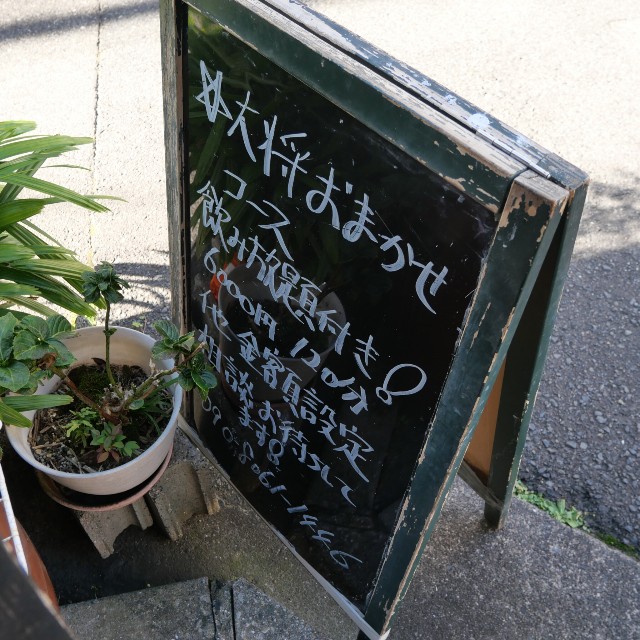 女大将おまかせ
コース
飲み放題付き
6000円 120分
他 金額設定
相談お待ちして
ます。